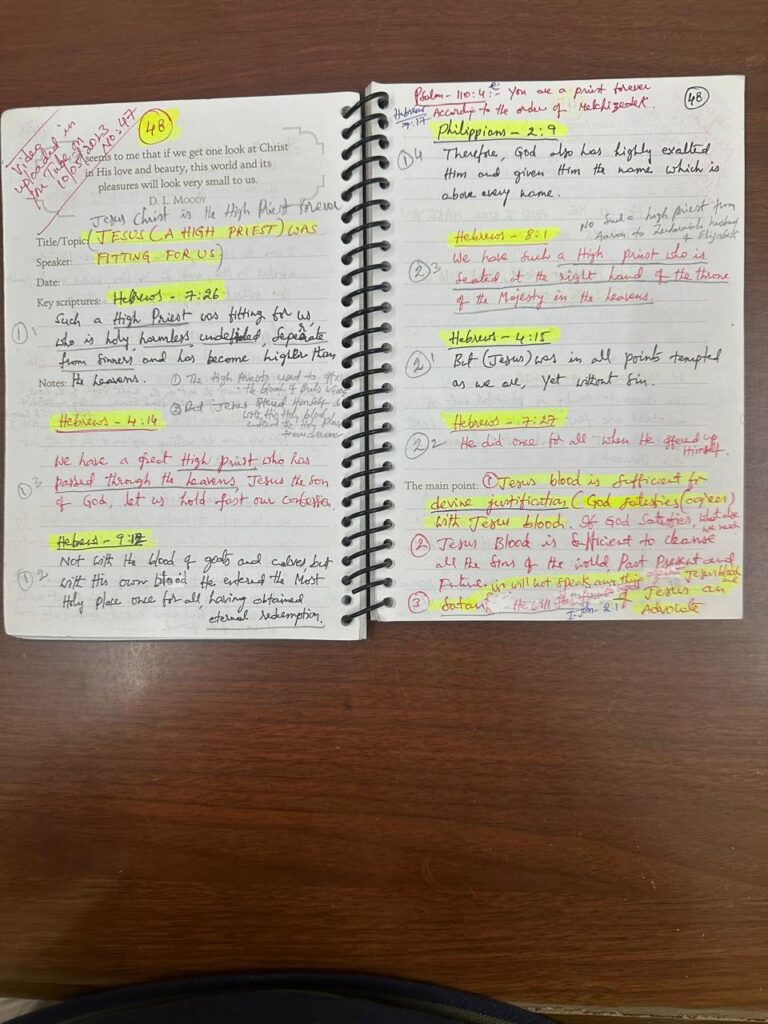 Video
uploaded in
You Tube on
NO:47
48
seems to me that if we get one look at Christ
in His love and beauty, this world and its
pleasures will look very small to us.
D. L. MOODY
Jesus Christ is the High Priest forever
Title/Topic: (JESUS (A HIGH PRIEST) WAS
Speaker: FITTING FOR US)
Date:
Key scriptures: Hebrews - 7:26
① 1 Such a High Priest was fitting for us
who is holy, harmless, undefiled, Seperate
from sinners and has become higher than
the heavens.
Notes: ① The High Priests used to offer
the blood of
② But Jesus offered Himself
with His Holy blood
entered the Holy Place
Hebrews - 4:14
① 3 We have a great High priest who has
passed through the heavens, Jesus the son
of God, let us hold fast our confession
Hebrews - 9:12
① 2 Not with the blood of gods and calves, but
with His own blood He entered the Most
Holy place once for all, having obtained
eternal redemption.
Psalm - 110:4 :- You are a priest forever
According to the order of Melchizedek.
Hebrews
7:17
48
Philippians - 2:9
① 4 Therefore, God also has highly exalted
Him and given Him the name which is
above every name.
No Such a high priest from
Aaron to Zechariah husband
of Elizabeth
Hebrews - 8:1
② 3 We have Such a High Priest who is
Seated at the right hand of the throne
of the Majesty in the heavens.
Hebrews - 4:15
② 1 But (Jesus) was in all points tempted
as we are, yet without Sin.
Hebrews - 7:27
② 2 He did once for all when He offered up
Himself.
The main point: ① Jesus blood is Sufficient for
devine justification (God satisfies (agrees)
with Jesus blood. If God Satisfies, what else
we need
② Jesus Blood is Sufficient to cleanse
all the Sins of the world, Past Present and
Future.
③ Satan will not speak any thing Jesus blood
He will Jesus an
I-John-2:1 Advocate